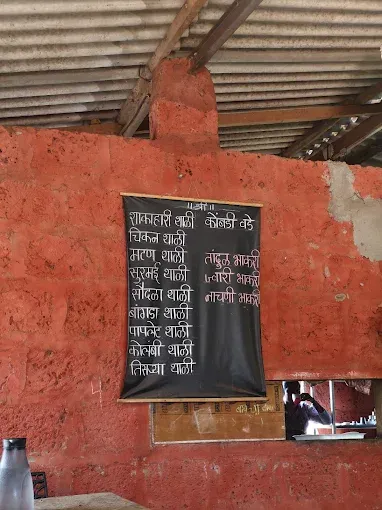 ॥ श्री ॥
शाकाहारी थाळी
चिकन थाळी
मटण थाळी
सुरमई थाळी
सौदळा थाळी
बांगडा थाळी
पापलेट थाळी
कोलंबी थाळी
तिसऱ्या थाळी
कोंबडी वडे
तांदुळ भाकरी
ज्वारी भाकरी
नाचणी भाकरी